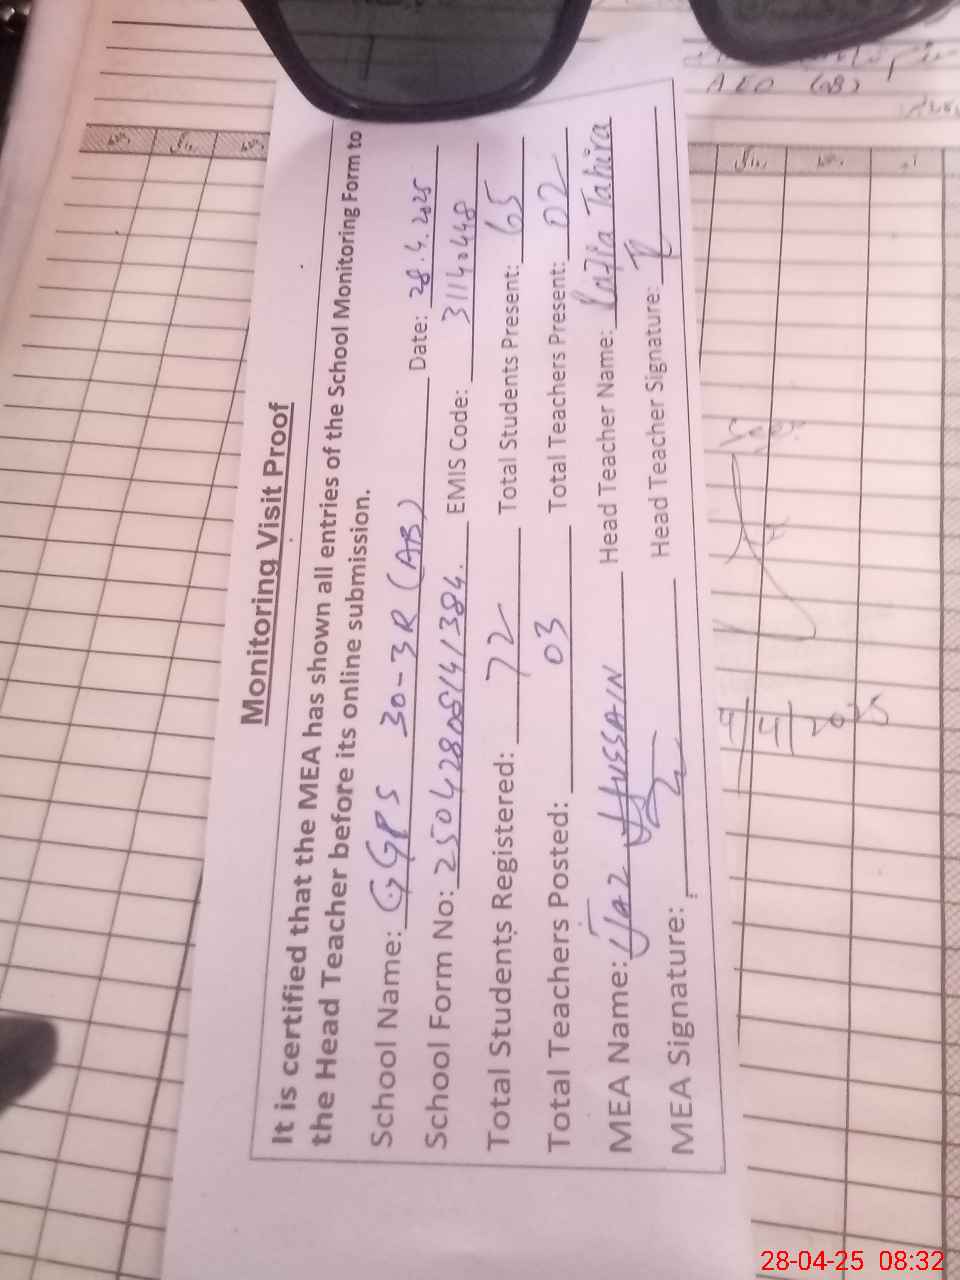 Monitoring Visit Proof
It is certified that the MEA has shown all entries of the School Monitoring Form to
the Head Teacher before its online submission.
School Name: GGPS 30-3R (AB) Date: 28.4.2025
School Form No: 25042808141384. EMIS Code: 31140448
Total Students Registered: 72 Total Students Present: 65
Total Teachers Posted: 03 Total Teachers Present: 02
MEA Name: Ijaz Hussain Head Teacher Name: Tahira
MEA Signature: Head Teacher Signature:
AEO
2025
28-04-25 08:32